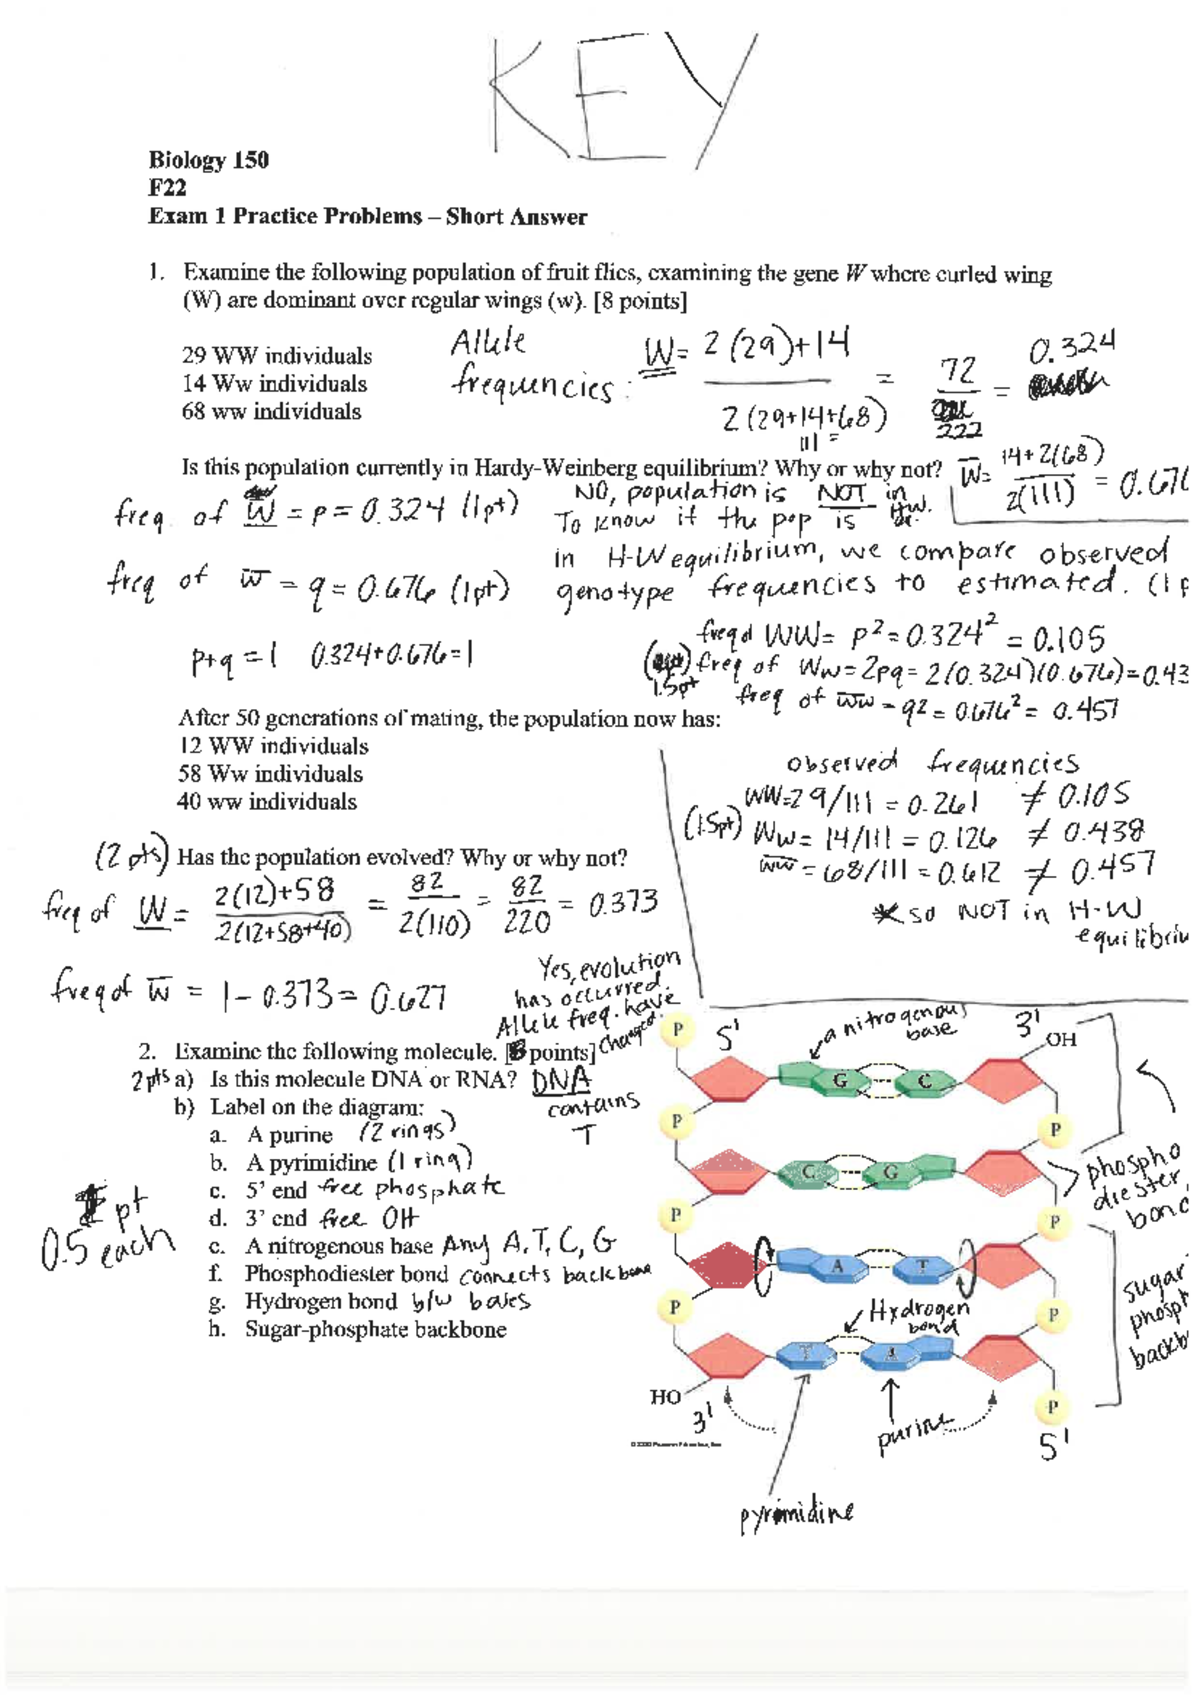 KEY
Biology 150
F22
Exam 1 Practice Problems – Short Answer
1. Examine the following population of fruit flies, examining the gene W where curled wing
(W) are dominant over regular wings (w). [8 points]
29 WW individuals
14 Ww individuals
68 ww individuals
Allele
frequencies:
W = 2(29)+14
2(29+14+68)
111 =
= 72
222
= 0.324
Is this population currently in Hardy-Weinberg equilibrium? Why or why not?
w̅ = 14+2(68)
2(111)
= 0.676
freq. of W = p = 0.324 (1pt)
freq of w̅ = q = 0.676 (1pt)
p+q = 1 0.324+0.676=1
NO, population is NOT in HW.
To know if the pop is
in H-W equilibrium, we compare observed
genotype frequencies to estimated. (1 p
freq of WW = p² = 0.324² = 0.105
(1.5pt) freq of Ww = 2pq = 2(0.324)(0.676) = 0.43
freq of w̅w̅ = q2 = 0.676² = 0.457
After 50 generations of mating, the population now has:
12 WW individuals
58 Ww individuals
40 ww individuals
observed frequencies
WW = 29/111 = 0.261 ≠ 0.105
(1.5pt) Ww = 14/111 = 0.126 ≠ 0.438
w̅w̅ = 68/111 = 0.612 ≠ 0.457
* so NOT in H-W
equilibriu
(2 pts) Has the population evolved? Why or why not?
freq of W = 2(12)+58
2(12+58+40)
= 82
2(110)
= 82
220
= 0.373
freq of w̅ = 1 - 0.373 = 0.627
Yes, evolution
has occurred.
Allele freq. have
changed.
2. Examine the following molecule. [8 points]
2pts a) Is this molecule DNA or RNA? DNA
contains
T
b) Label on the diagram:
a. A purine (2 rings)
b. A pyrimidine (1 ring)
c. 5' end free phosphate
d. 3' end free OH
e. A nitrogenous base Any A, T, C, G
f. Phosphodiester bond connects backbone
g. Hydrogen bond b/w bases
h. Sugar-phosphate backbone
pt
0.5 each
P 5' a nitrogenous
base
3' OH
G C
P P
C G
phospho
diester
bond
P P
A T
P P
Hydrogen
bond
sugar
phosph
backb
T A
HO 3'
P
5'
purine
pyrimidine